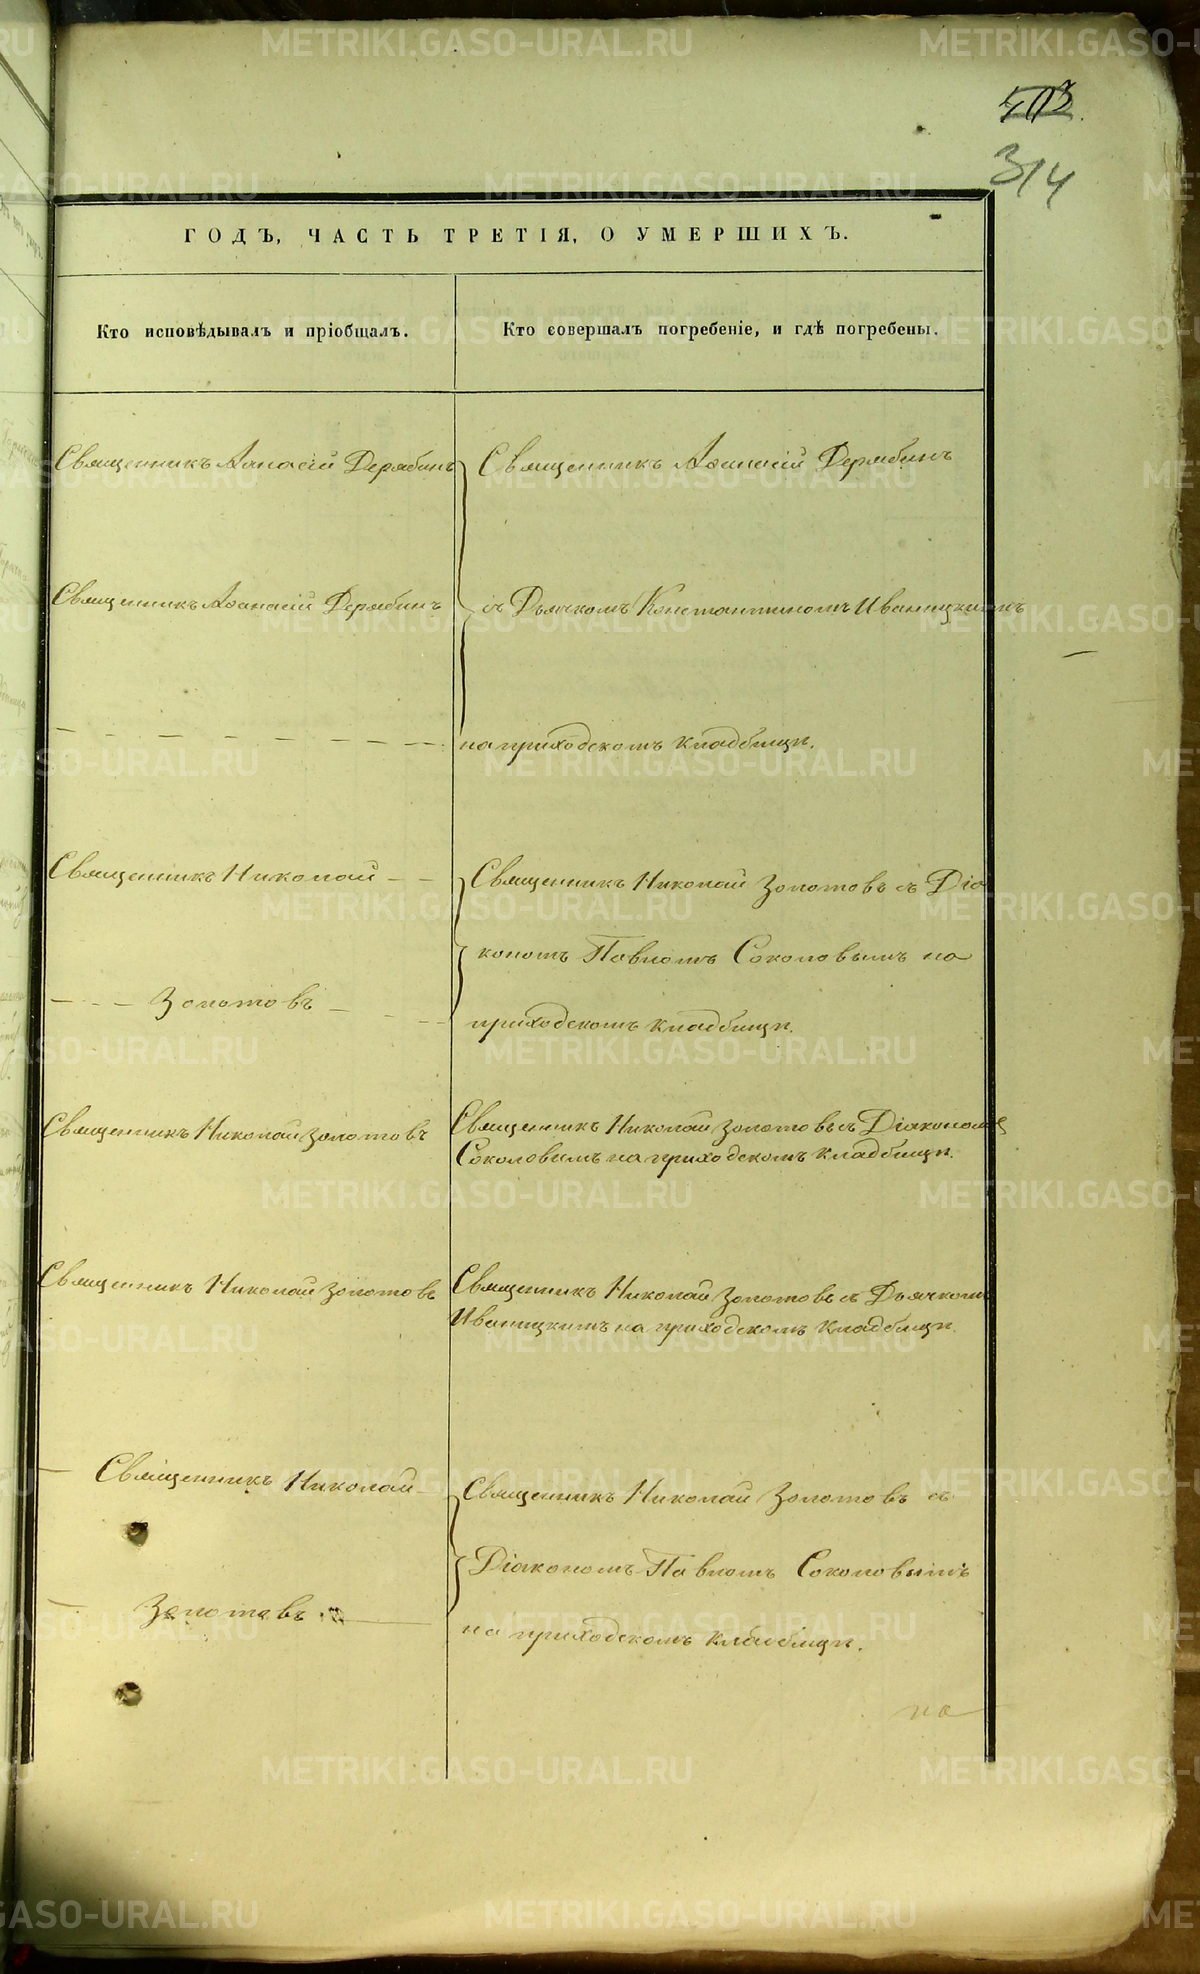 METRIKI.GASO-URAL.RU
503.
314
ГОДЪ, ЧАСТЬ ТРЕТІЯ, О УМЕРШИХЪ.
Кто исповѣдывалъ и пріобщалъ.
Кто совершалъ погребеніе, и гдѣ погребены.
Священникъ Аѳанасій Дерябинъ
Священникъ Аѳанасій Дерябинъ
Священникъ Аѳанасій Дерябинъ
съ Дьячкомъ Константиномъ Иваницкимъ
на приходскомъ кладбищѣ.
Священникъ Николай
Золотовъ
Священникъ Николай Золотовъ съ Діа
кономъ Павломъ Соколовымъ на
приходскомъ кладбищѣ.
Священникъ Николай Золотовъ
Священникъ Николай Золотовъ съ Діакономъ
Соколовымъ на приходскомъ кладбищѣ.
Священникъ Николай Золотовъ
Священникъ Николай Золотовъ съ Дьячкомъ
Иваницкимъ на приходскомъ кладбищѣ.
Священникъ Николай
Золотовъ
Священникъ Николай Золотовъ съ
Діакономъ Павломъ Соколовымъ
на приходскомъ кладбищѣ.
на